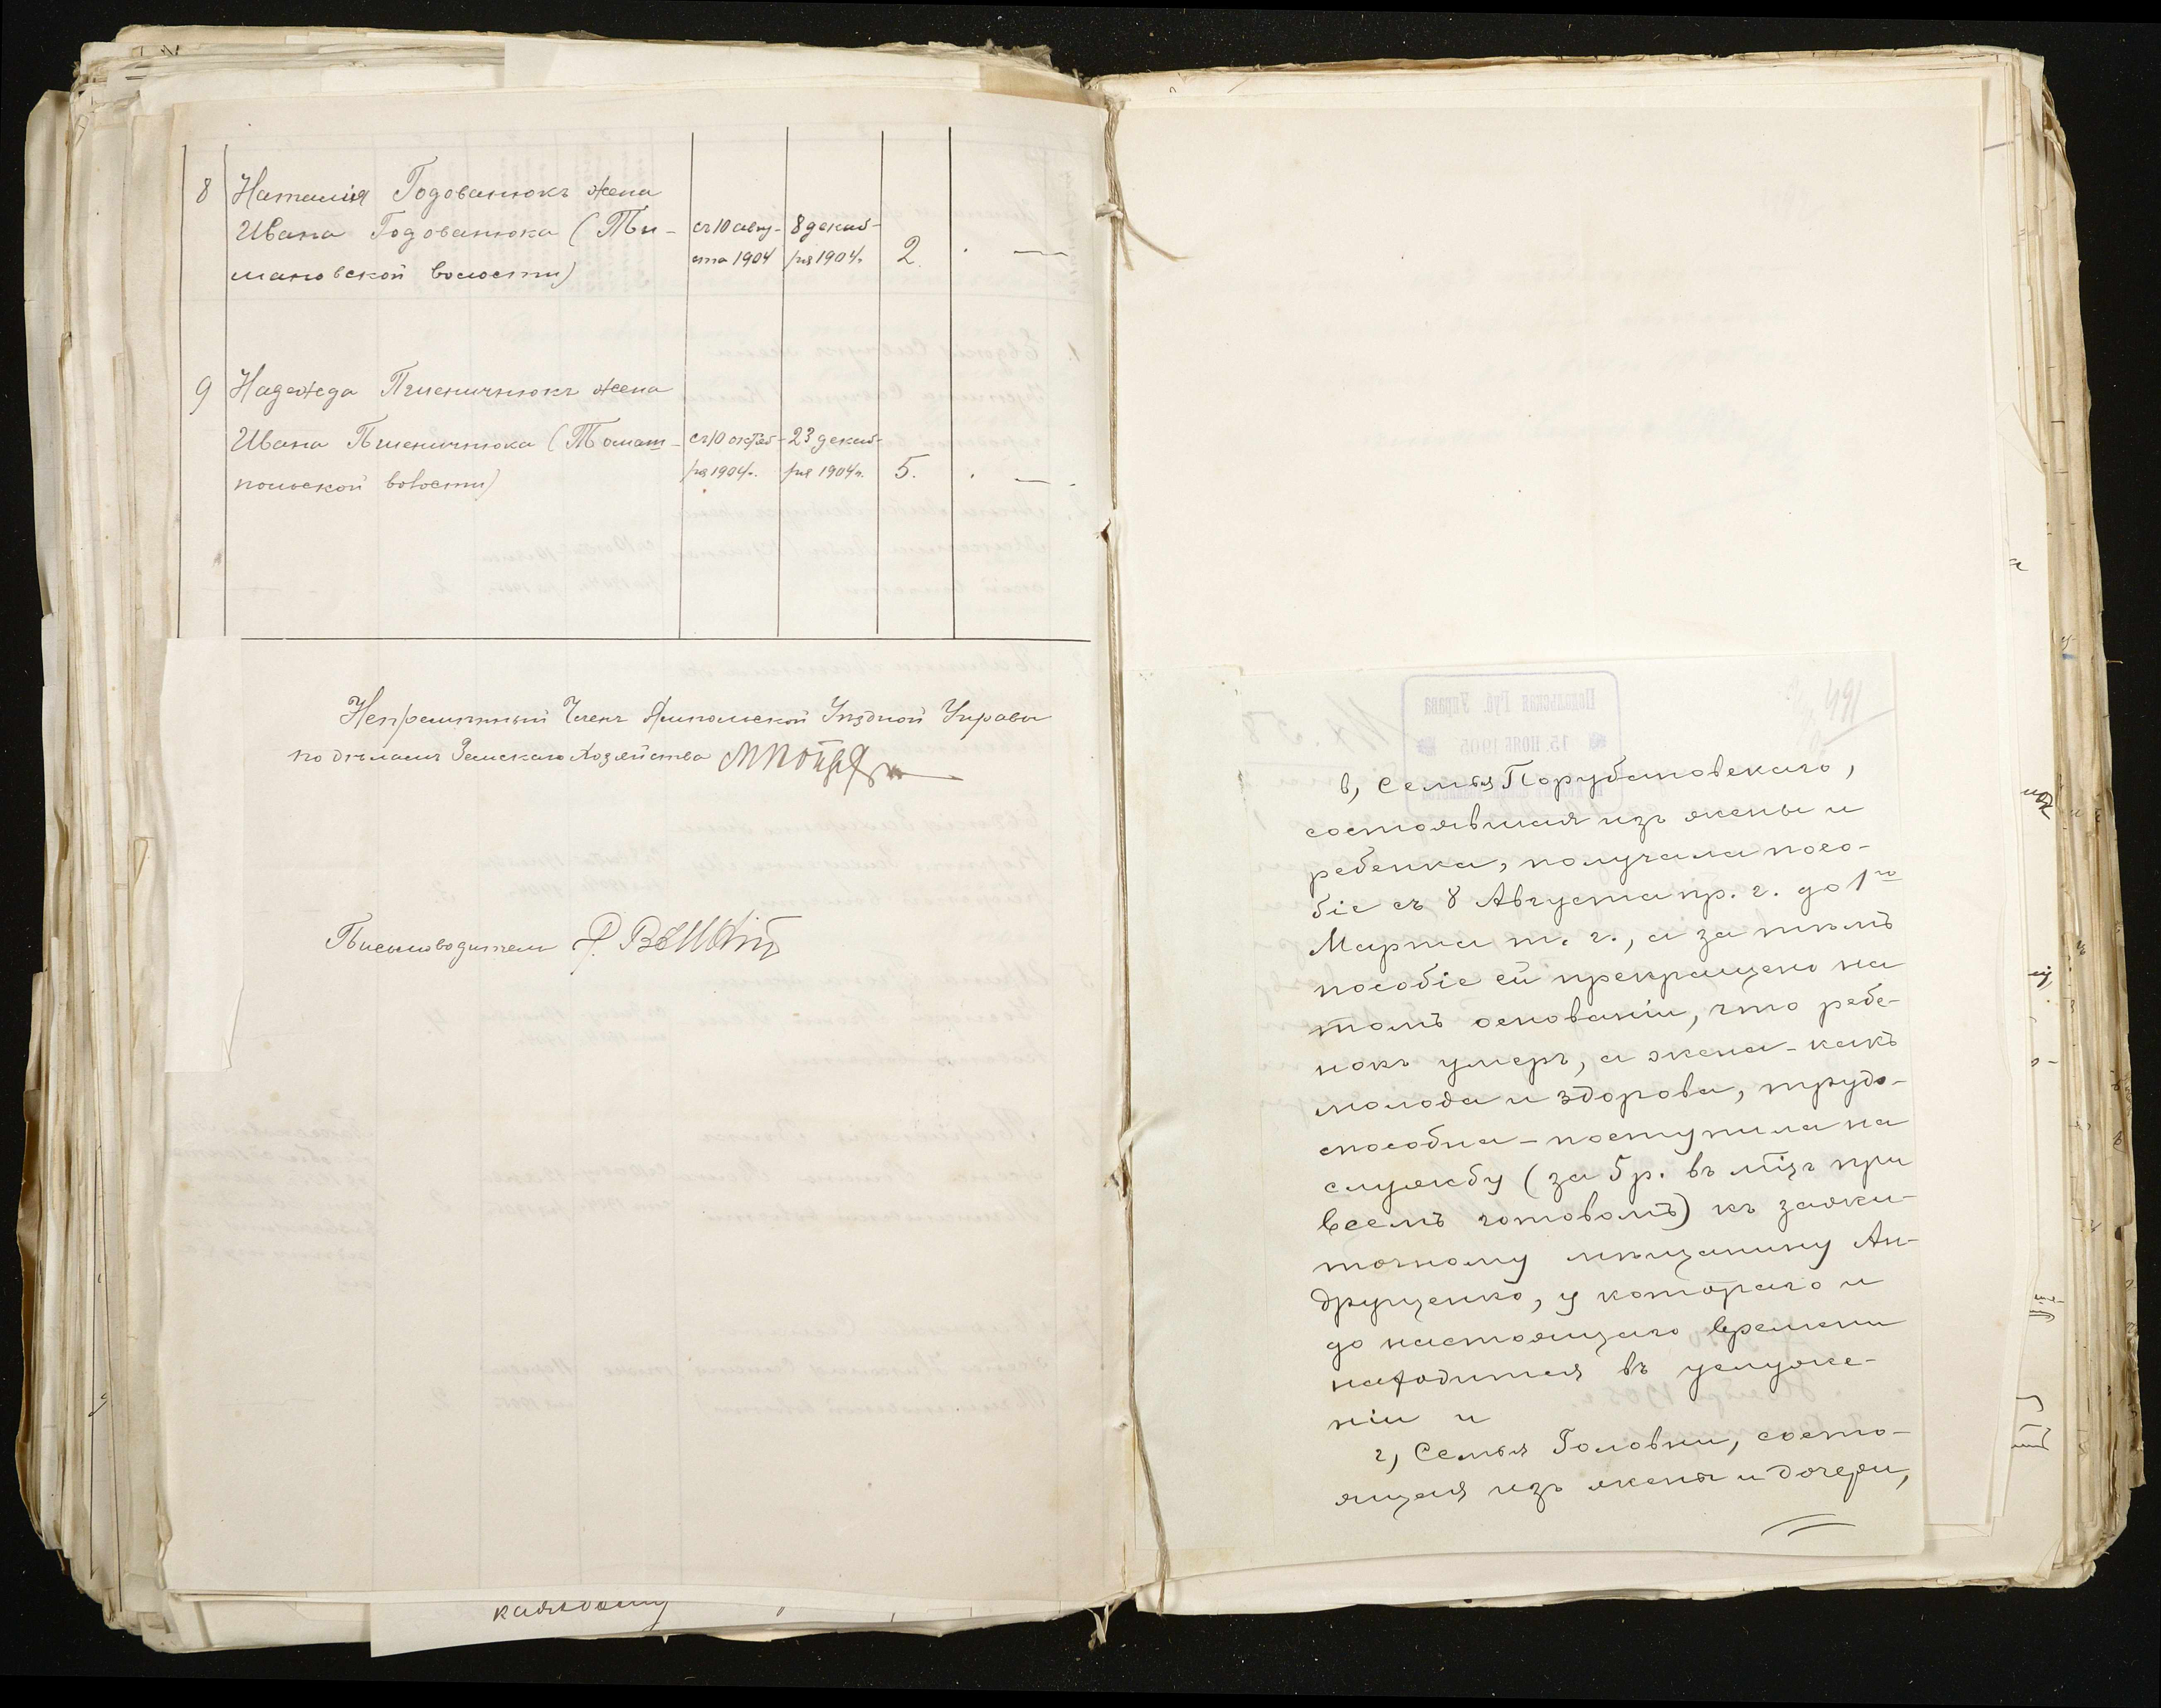 8 Наталия Годованюкъ жена
Ивана Годованюка (Ти-
мановской волости)
съ 10 авгу-
ста 1904
8 декаб-
ря 1904г.
2.
9 Надежда Пшеничнюкъ жена
Ивана Пшеничнюка (Томаш-
польской волости)
съ 10 октяб-
ря 1904г.
23 декаб-
ря 1904г.
5.
Непремѣнный Членъ Ямпольской Уѣздной Управы
по дѣламъ Земскаго Хозяйства
Письмоводитель
каждому
Подольская Губ. Управа
15. НОЯБ 1905
491
в, Семья Порубановскаго,
состоявшая изъ жены и
ребенка, получала посо-
біе съ 8 Августа пр. г. до 1го
Марта т. г., а за тѣмъ
пособіе ей прекращено на
томъ основаніи, что ребе-
нокъ умеръ, а жена - какъ
молода и здорова, трудо-
способна - поступила на
службу (за 5 р. въ мѣц. при
всемъ готовомъ) къ зажи-
точному мѣщанину Ан-
друщенко, у котораго и
до настоящаго времени
находится въ услуже-
ніи и
г, Семья Головни, состо-
ящая изъ жены и дочери,